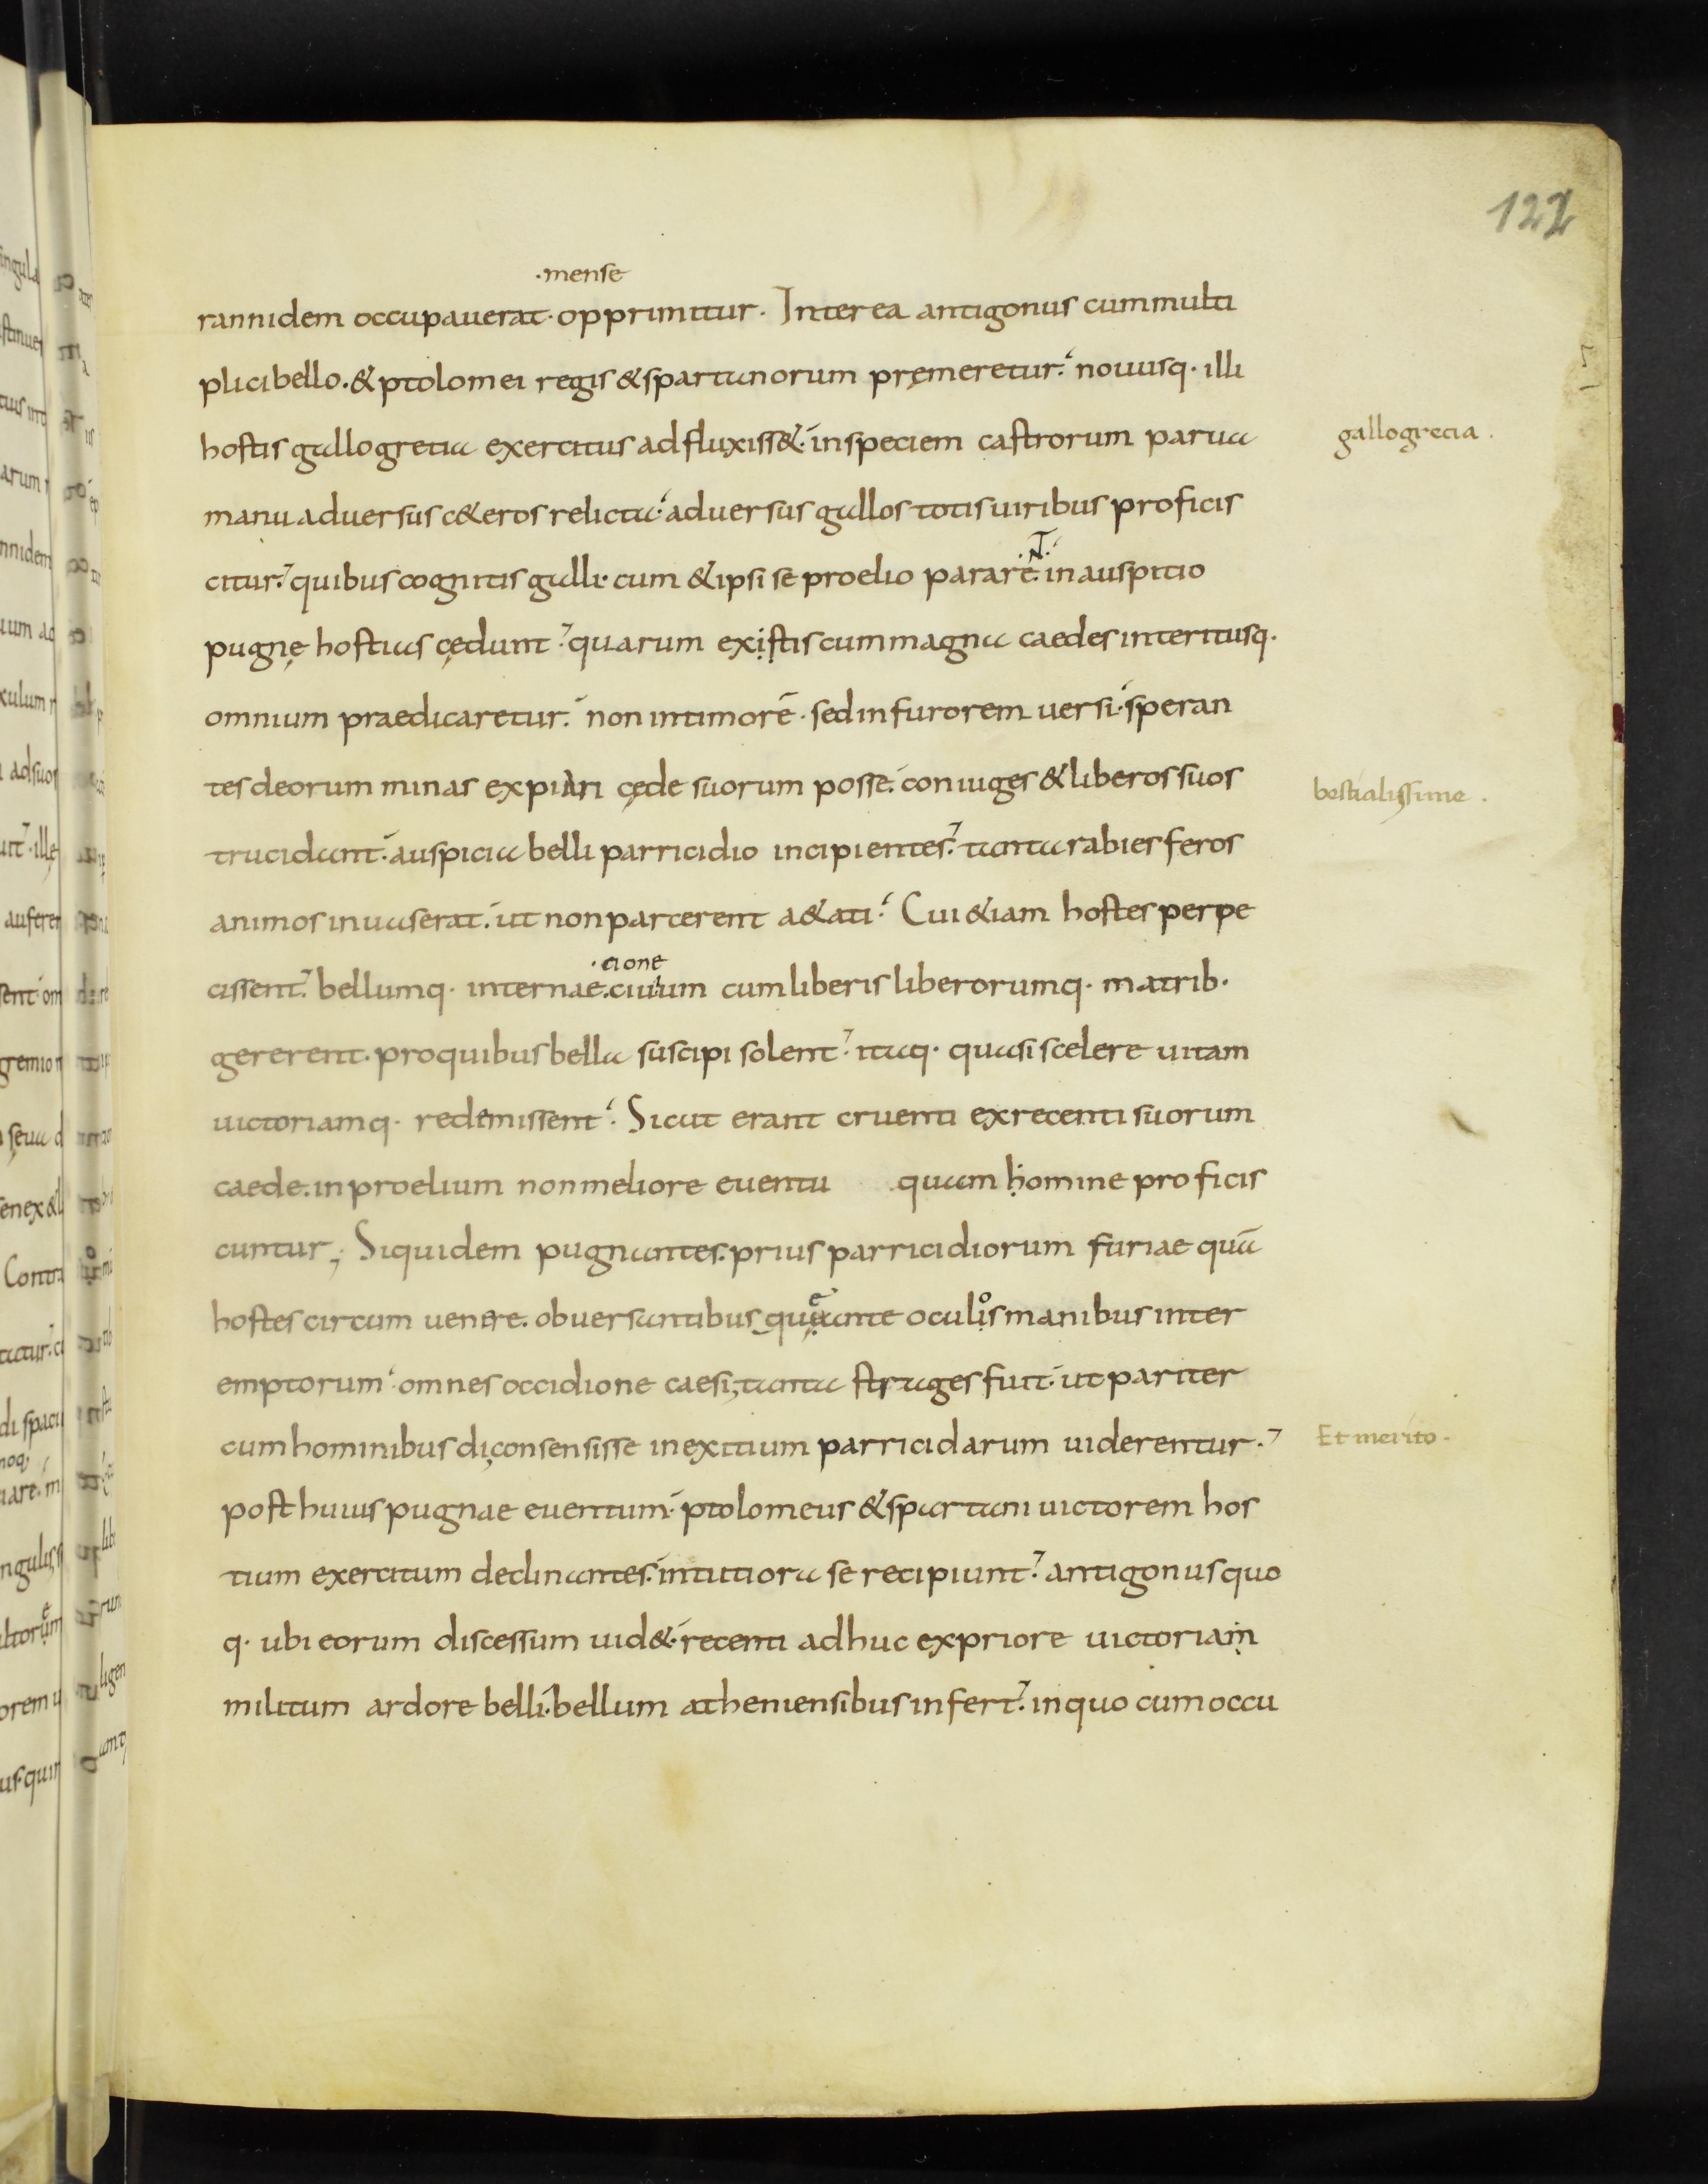 122
·mense
rannidem occupauerat· opprimitur· Interea antigonus cum multi
plici bello· & ptolomei regis & spartanorum pręmeretur· nouusq· illi
hostis gallogretia exercitus adfluxiss&· in speciem castrorum parua
gallogrecia ·
manu aduersus c&eros relicta· aduersus gallos totis uiribus proficis
citur· quibus cognitis galli· cum & ipsi se proelio parareNT· in auspitio
pugnę hostias cędunt· quarum existis cum magna caedes interitusq·
omnium praedicaretur· non in timorē· sed in furorem uersi· speran
tes deorum minas expiari cęde suorum posse· coniuges & liberos suos
bestialissime ·
trucidant· auspicia belli parricidio incipientes· tanta rabies feros
animos inuaserat· ut non parcerent a&ati· Cui &iam hostes perpe
·cione
cissent· bellumq· internae·ciuium cum liberis liberorumq· matrib·
gererent· pro quibus bella suscipi solent· itaq· quasi scelere uitam
uictoriamq· redemissent· Sicut erant cruenti ex recenti suorum
caede· in proelium non meliore euentu quam homine proficis
cuntur; Siquidem pugnantes· prius parricidiorum furiae quā
hostes circumuenere· obuersantibus quęante oculis manibus inter
emptorum· omnes occidione caesi; tanta strages fuit· ut pariter
cum hominibus di consensisse in exitium parricidarum uiderentur·
Et merito ·
post huius pugnae euentum· ptolomeus & spartani uictorem hos
tium exercitum declinantes· in tutiora se recipiunt· antigonus quo
q· ubi eorum discessum uid&· recenti adhuc ex priore uictoriam
militum ardore belli· bellum atheniensibus infert· in quo cum occu